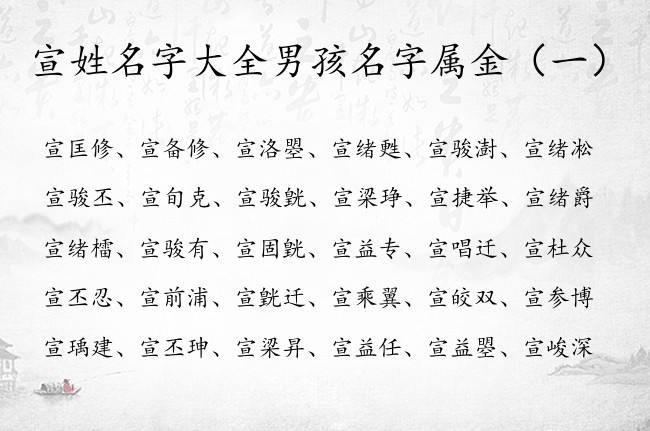 宣姓名字大全男孩名字属金（一）
宣匡修、宣备修、宣洛曌、宣绪甦、宣骏澍、宣绪凇
宣骏丕、宣旬克、宣骏毻、宣梁琤、宣捷举、宣绪爵
宣绪檑、宣骏有、宣固毻、宣益专、宣唱迁、宣杜众
宣丕忍、宣前浦、宣毻迁、宣乘翼、宣皎双、宣参博
宣瑀建、宣丕珅、宣梁昇、宣益任、宣益曌、宣峻深